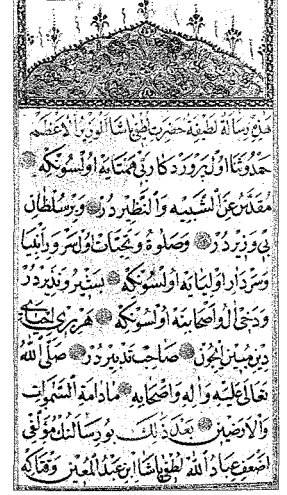 هذه رسالة لطيفة حضرت لطفي پاشا الوزير الاعظم
حمد و ثنا اول پروردكار بى همتايه اولسونكه
مقدس عن الشبيه والنظيردر وبر سلطان
بى وزيردر وصلوة وتحيات اول سرور انبيا
وسردار اوليايه اولسونكه بشير ونذيردر
ودخى آل واصحابنه اولسونكه هر برى
دين مبين ايچون صاحب تدبيردر صلى الله
تعالى عليه وآله واصحابه مادامة السموات
والارضين بعد ذلك بو رسالنك مؤلفى
اضعف عباد الله لطفى پاشا ابن عبد المعين وقتاكه